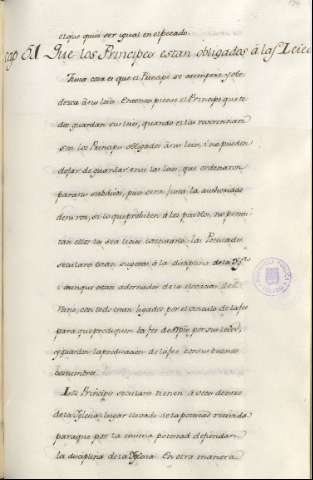 el que quisi ser igual en el pecado.
cap 51 Que los Principes estan obligados á las Leies
Justa cosa es que el Principe se acempere y obe
desca á sus leies. Entonces piense el Principe que to
dos guardan sus leies, quando el las reverencia
son los Principes obligados á sus leies i no pueden
dejar de guardar en si las leies, que ordenaron
para sus subditos, pues sera justa la authoridad
de su vos, si lo que prohiben á los pueblos, no permi
tan ellos les sea licito cometerlo. las Potestades
seculares estan sugetas á la disciplina de la Iglesia
i aunque estan adornados de la eleccion del
Reino, con todo estan ligados por el vinculo de la fee
para que prediquen la fee de Xpto, por sus leies,
y guarden la predicacion de la fee con sus buenas
costumbres.
Los Principes seculares tienen á veces dentro
de la Iglesia lugar elevado de la potestad recivida
para que por la misma potestad defiendan
la disciplina de la Iglesia. En otra manera